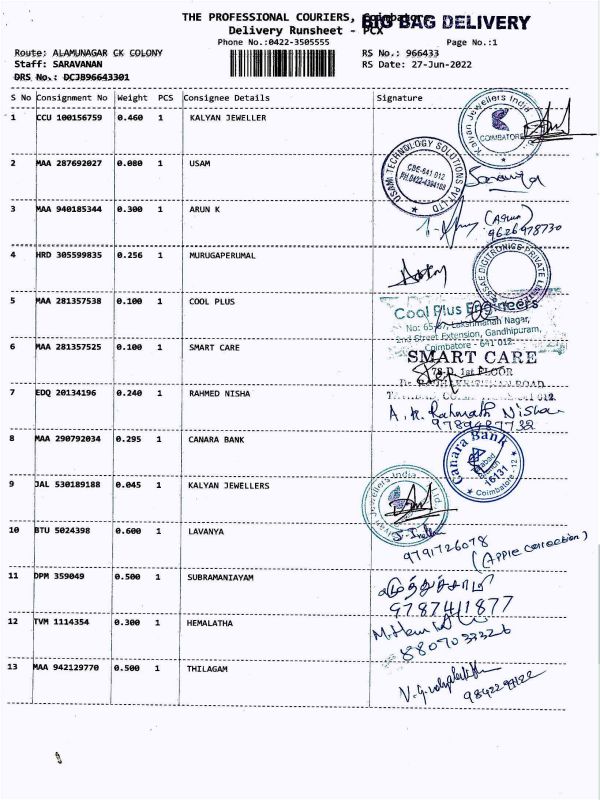 THE PROFESSIONAL COURIERS, Coimbatore
BIG BAG DELIVERY
Delivery Runsheet - PCX
Phone No.:0422-3505555
Page No.:1
Route: ALAMUNAGAR CK COLONY
RS No.: 966433
Staff: SARAVANAN
RS Date: 27-Jun-2022
DRS No.: DCJ896643301
S No Consignment No Weight PCS Consignee Details Signature
1 CCU 100156759 0.460 1 KALYAN JEWELLER
Kalyan Jewellers India
COIMBATORE
2 MAA 287692027 0.080 1 USAM
USAM TECHNOLOGY SOLUTIONS PVT LTD
CBE-641 012
PH.0422-4394108
3 MAA 940185344 0.300 1 ARUN K
9626978730
4 HRD 305599835 0.256 1 MURUGAPERUMAL
DIGITRONICS PRIVATE
5 MAA 281357538 0.100 1 COOL PLUS
Cool Plus Engineers
Lakshmanan Nagar,
2nd Street Extension, Gandhipuram,
Coimbatore - 641 012.
6 MAA 281357525 0.100 1 SMART CARE
SMART CARE
1st FLOOR
7 EDQ 20134196 0.240 1 RAHMED NISHA
A. R. Rahmath Nisha
9789487732
8 MAA 290792034 0.295 1 CANARA BANK
Canara Bank
16131
Coimbatore - 12
9 JAL 530189188 0.045 1 KALYAN JEWELLERS
Jewellers India Ltd.
10 BTU 5024398 0.600 1 LAVANYA
9791726078
(Apple collection)
11 DPM 359049 0.500 1 SUBRAMANIAYAM
முத்துச்சாமி
9787411877
12 TVM 1114354 0.300 1 HEMALATHA
8807033326
13 MAA 942129770 0.500 1 THILAGAM